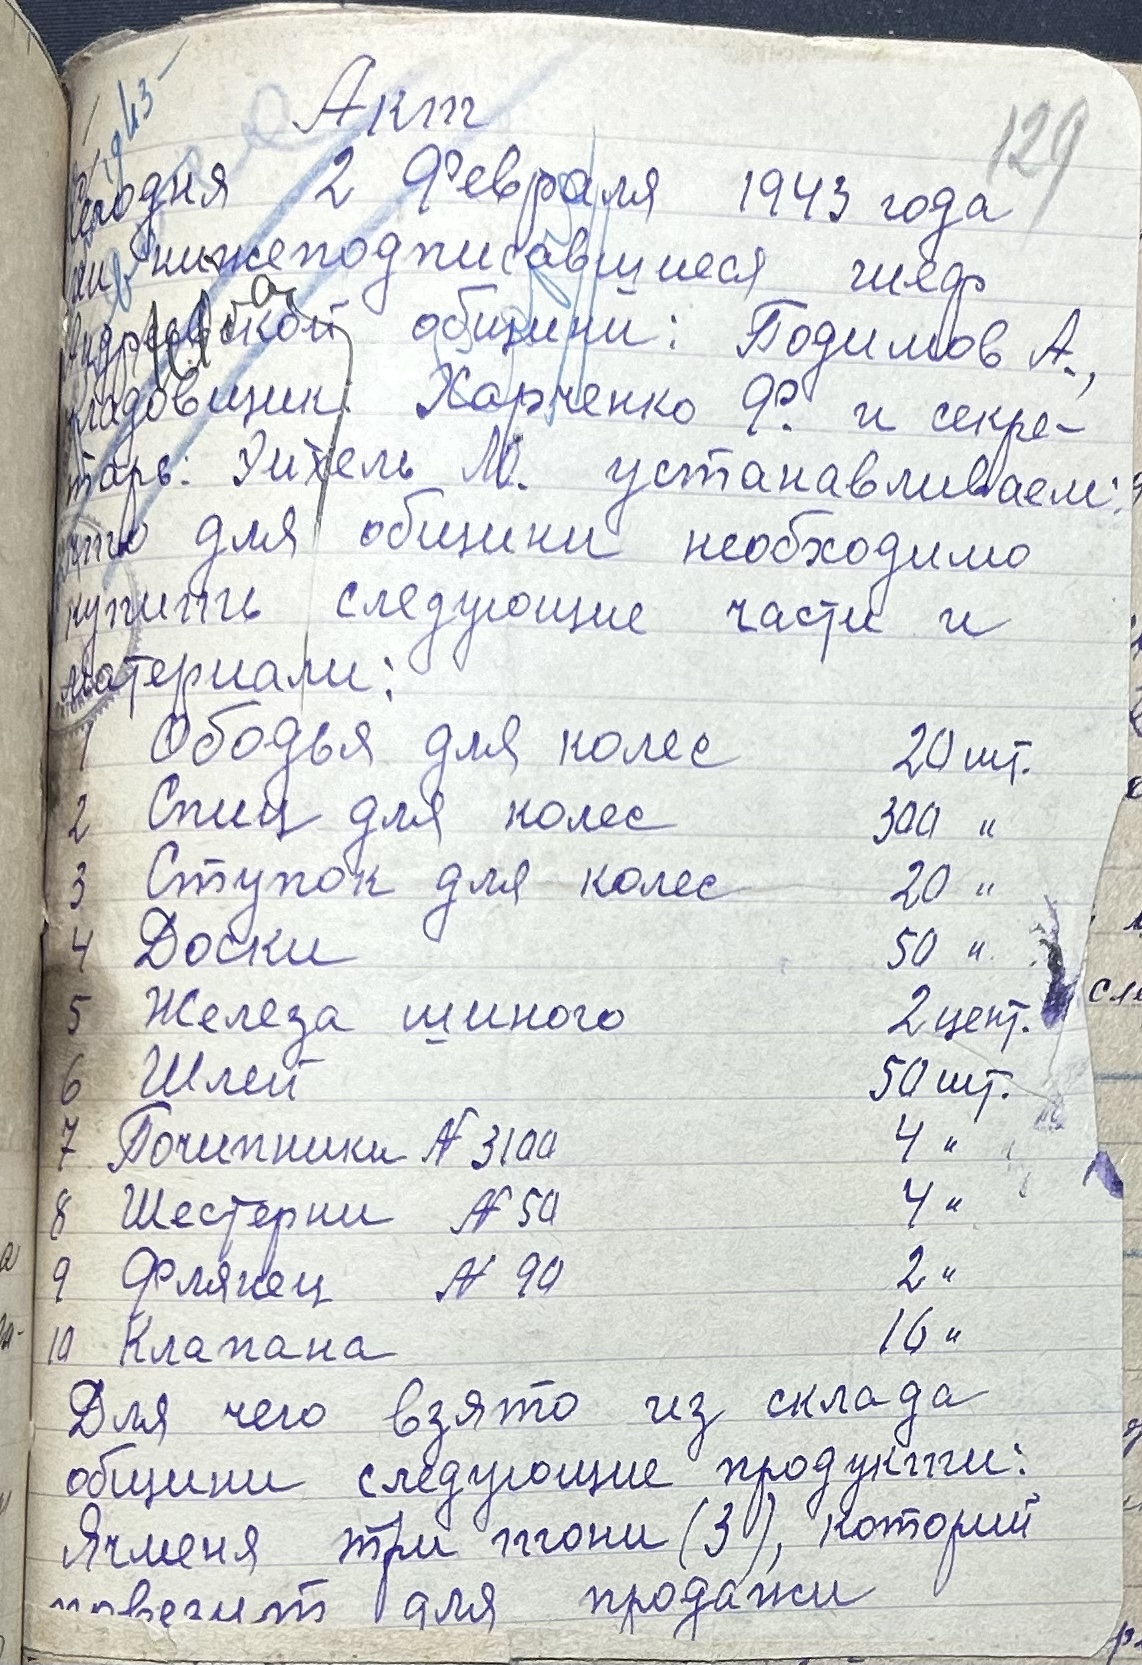 Акт
129
Сегодня 2 Февраля 1943 года
ми нижеподписавшиеся шеф
общини: Подимов А.,
кладовщик: Харченко Ф. и секре-
тарь: М. устанавливаем:
что для общини необходимо
купить следующие части и
материали:
1 Ободья для колес 20 шт.
2 Спиц для колес 300 "
3 Ступок для колес 20 "
4 Доски 50 "
5 Железа шиного 2 цент.
6 Шлей 50 шт.
7 Почипники № 3100 4 "
8 Шестерни № 50 4 "
9 Флянец № 90 2 "
10 Клапана 16 "
Для чего взято из склада
общини следующие продукти:
Ячменя три тони (3), который
повезит для продажи